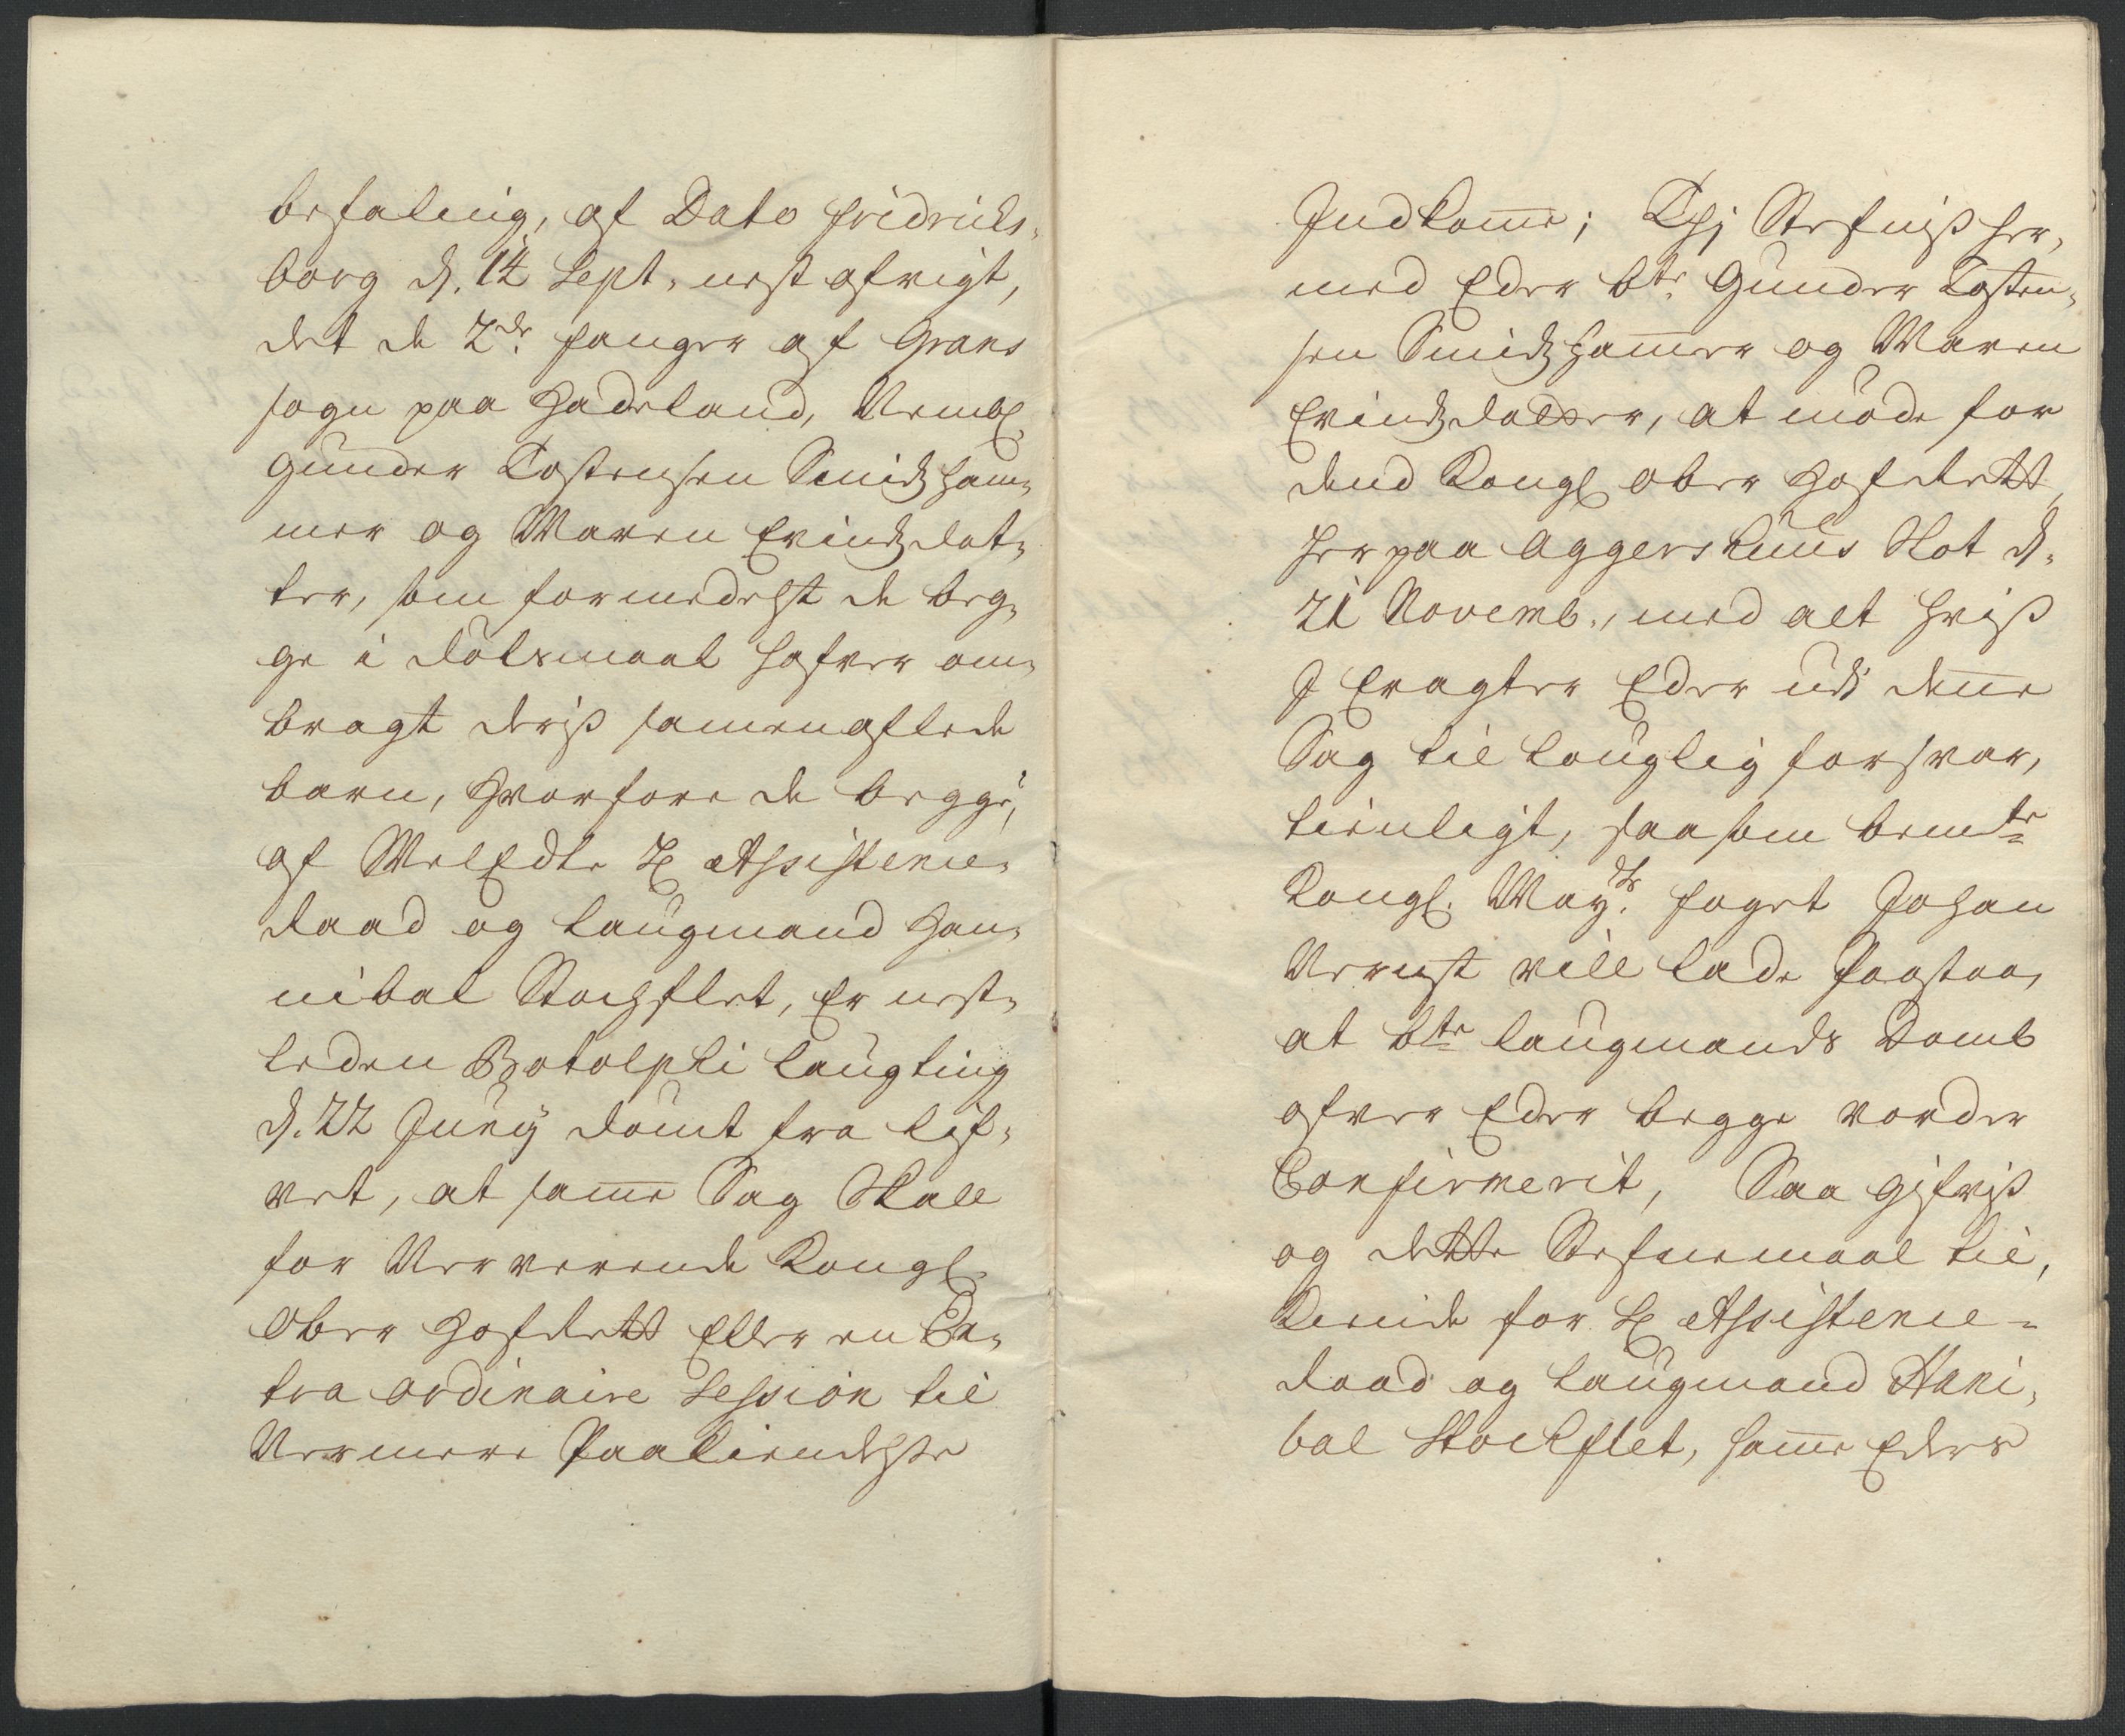 befaling, af Dato Fridrichs,
borg d. 14 Sept. nest afvigt,
det de 2de fanger af Grans
sogn paa Hadeland, Nembl.
Gunder Tostensen Smidsham,
mer og Maren Evindsdat,
ter, som formedelst de beg,
ge i dølsmaal hafver om,
bragt deris sammenaflede
barn, Hvorfore de begge,
af WelEdle Hr Assistence,
Raad og Laugmand Han,
nibal Stochflet, Er nest,
leden Botolphi Laugting
d. 22 Junij dømt fra lif,
vet, at samme Sag Skall
for Nerverende Kongl.
Ober Hofrett Eller en Ex,
tra ordinaire Session til
Nermere Paakiendelse
Indkomme; Thj Stefnis her,
med Eder bte Gunder Tosten,
sen Smidshammer og Maren
Evindsdatter, at møde for
dend Kongl. Ober Hofrett,
her paa Aggershuus Slot d.
21 Novemb., med alt hvis
I Eragter Eder udi denne
Sag til louglig forsvar,
tienligt, saasom bemte
Kongl. Mayts. foget Johan
Vernst vill lade Paastaa,
at bte Laugmands Domb
ofver Eder begge vorder
Confirmerit, Saa gifvis
og dette Stefnemaal til,
Kiende for Hr Assistence-
Raad og Laugmand Hani,
bal Stockflet, samme Eders